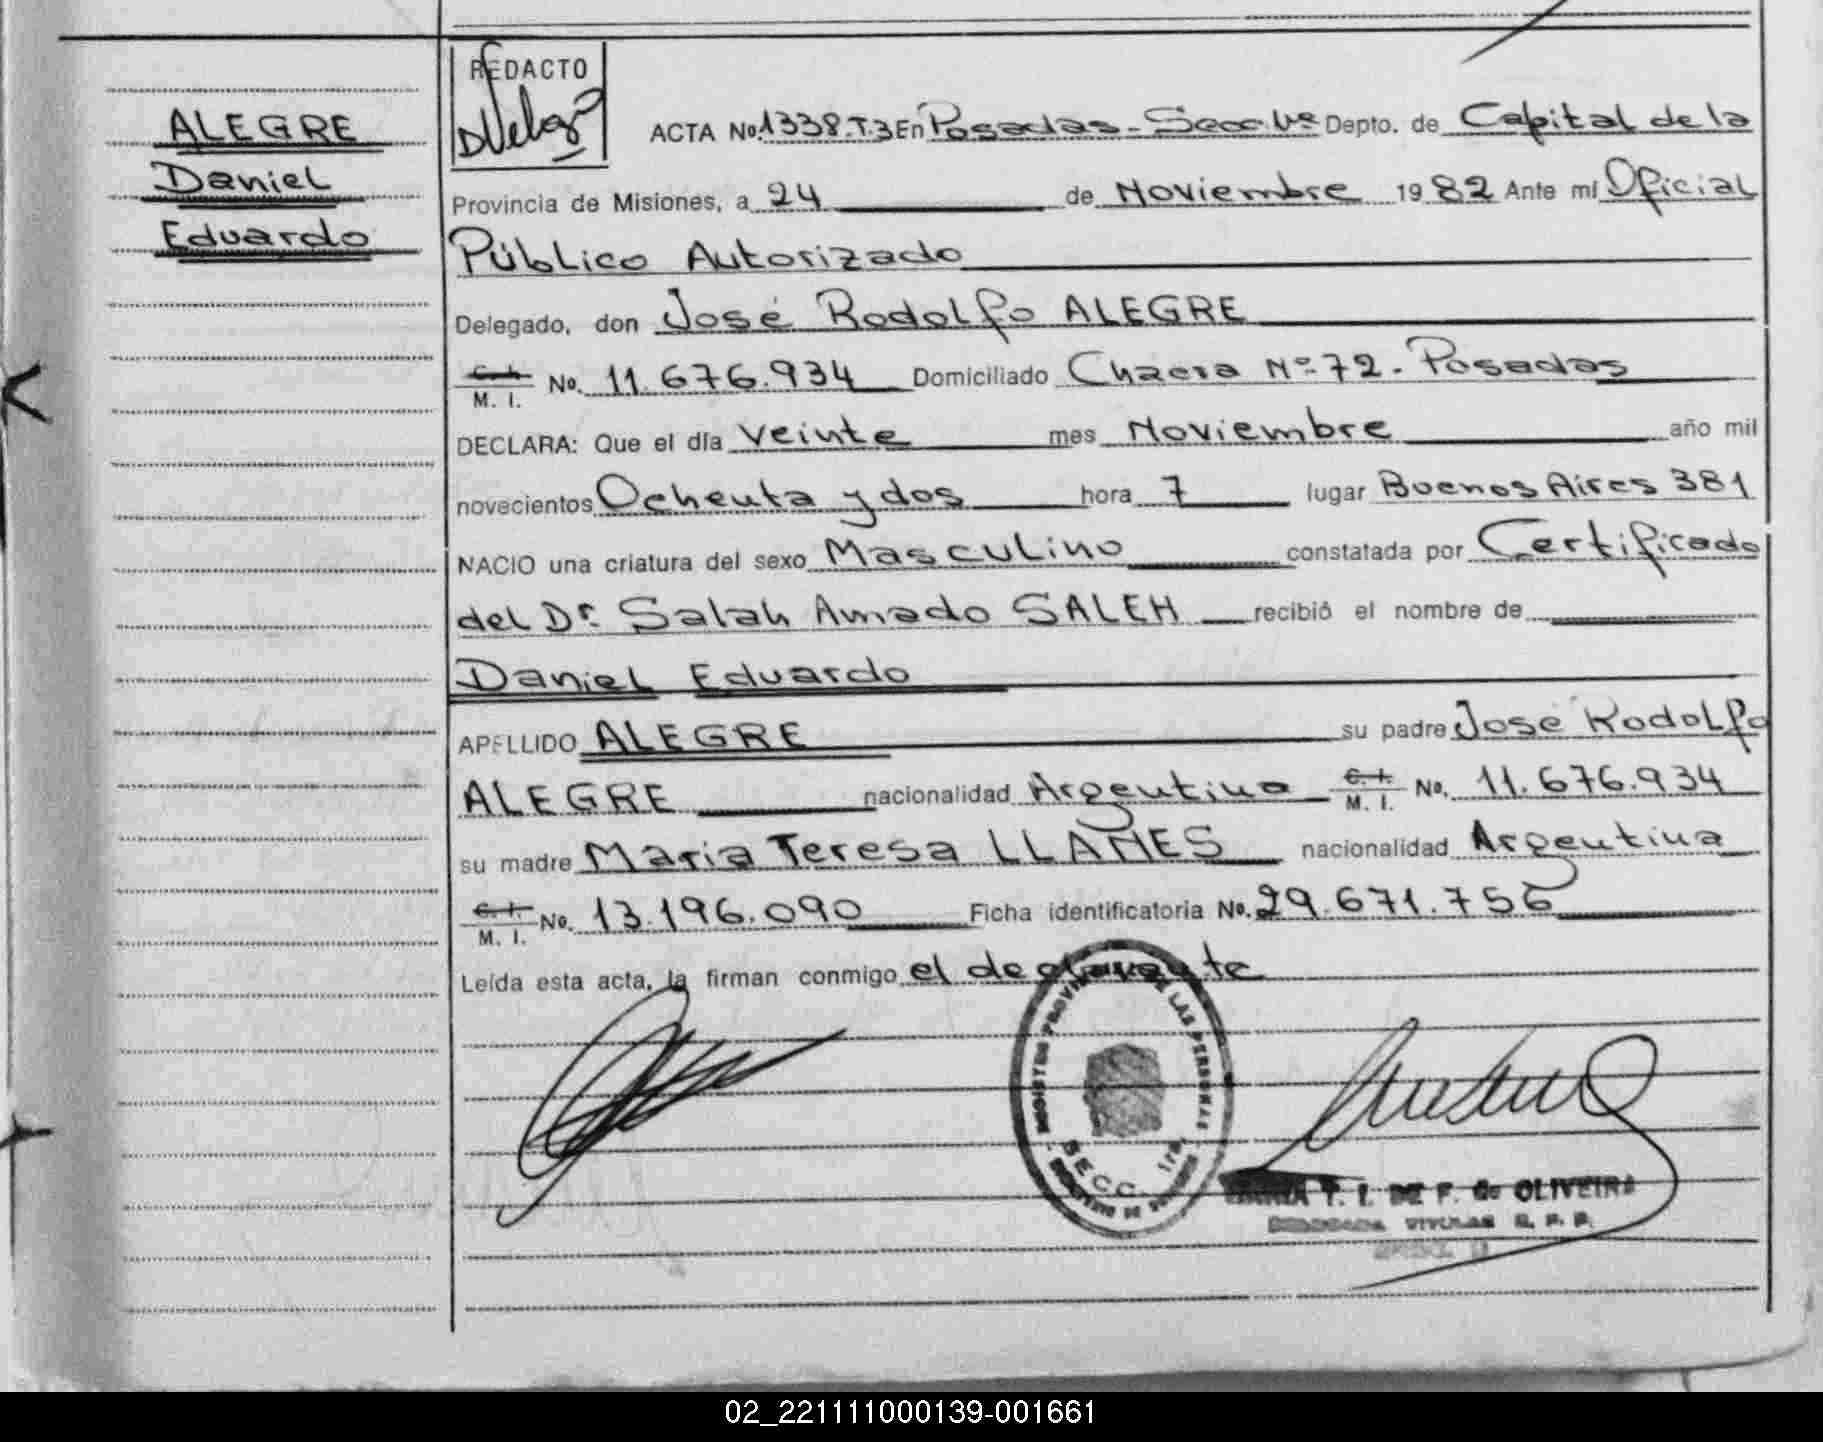 ALEGRE
Daniel
Eduardo
REDACTO
ACTA No. 1338.T.3 En Posadas - Secc. 1ª Depto. de Capital de la
Provincia de Misiones, a 24 de Noviembre 1982 Ante mí Oficial
Público Autorizado
Delegado, don José Rodolfo ALEGRE
C. I. M. I. No. 11.676.934 Domiciliado Chacra Nº 72 - Posadas
DECLARA: Que el día veinte mes Noviembre año mil
novecientos Ochenta y dos hora 7 lugar Buenos Aires 381
NACIO una criatura del sexo Masculino constatada por Certificado
del Dr. Salah Amado SALEH recibió el nombre de
Daniel Eduardo
APELLIDO ALEGRE su padre José Rodolfo
ALEGRE nacionalidad Argentino C. I. M. I. No. 11.676.934
su madre Maria Teresa LLANES nacionalidad Argentina
C. I. M. I. No. 13.196.090 Ficha identificatoria No. 29.671.756
Leída esta acta, la firman conmigo el declarante
REGISTRO PROVINCIAL DE LAS PERSONAS
SECC. 1ra.
MARIA T. I. DE F. de OLIVEIRA
02_221111000139-001661